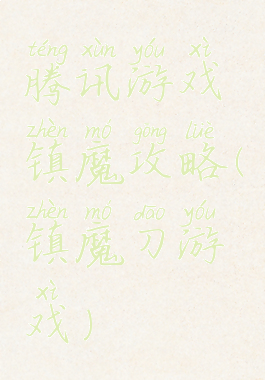 téng xùn yóu xì
腾讯游戏
zhèn mó gōng lüè
镇魔攻略(
zhèn mó dāo yóu
镇魔刀游
xì
戏)